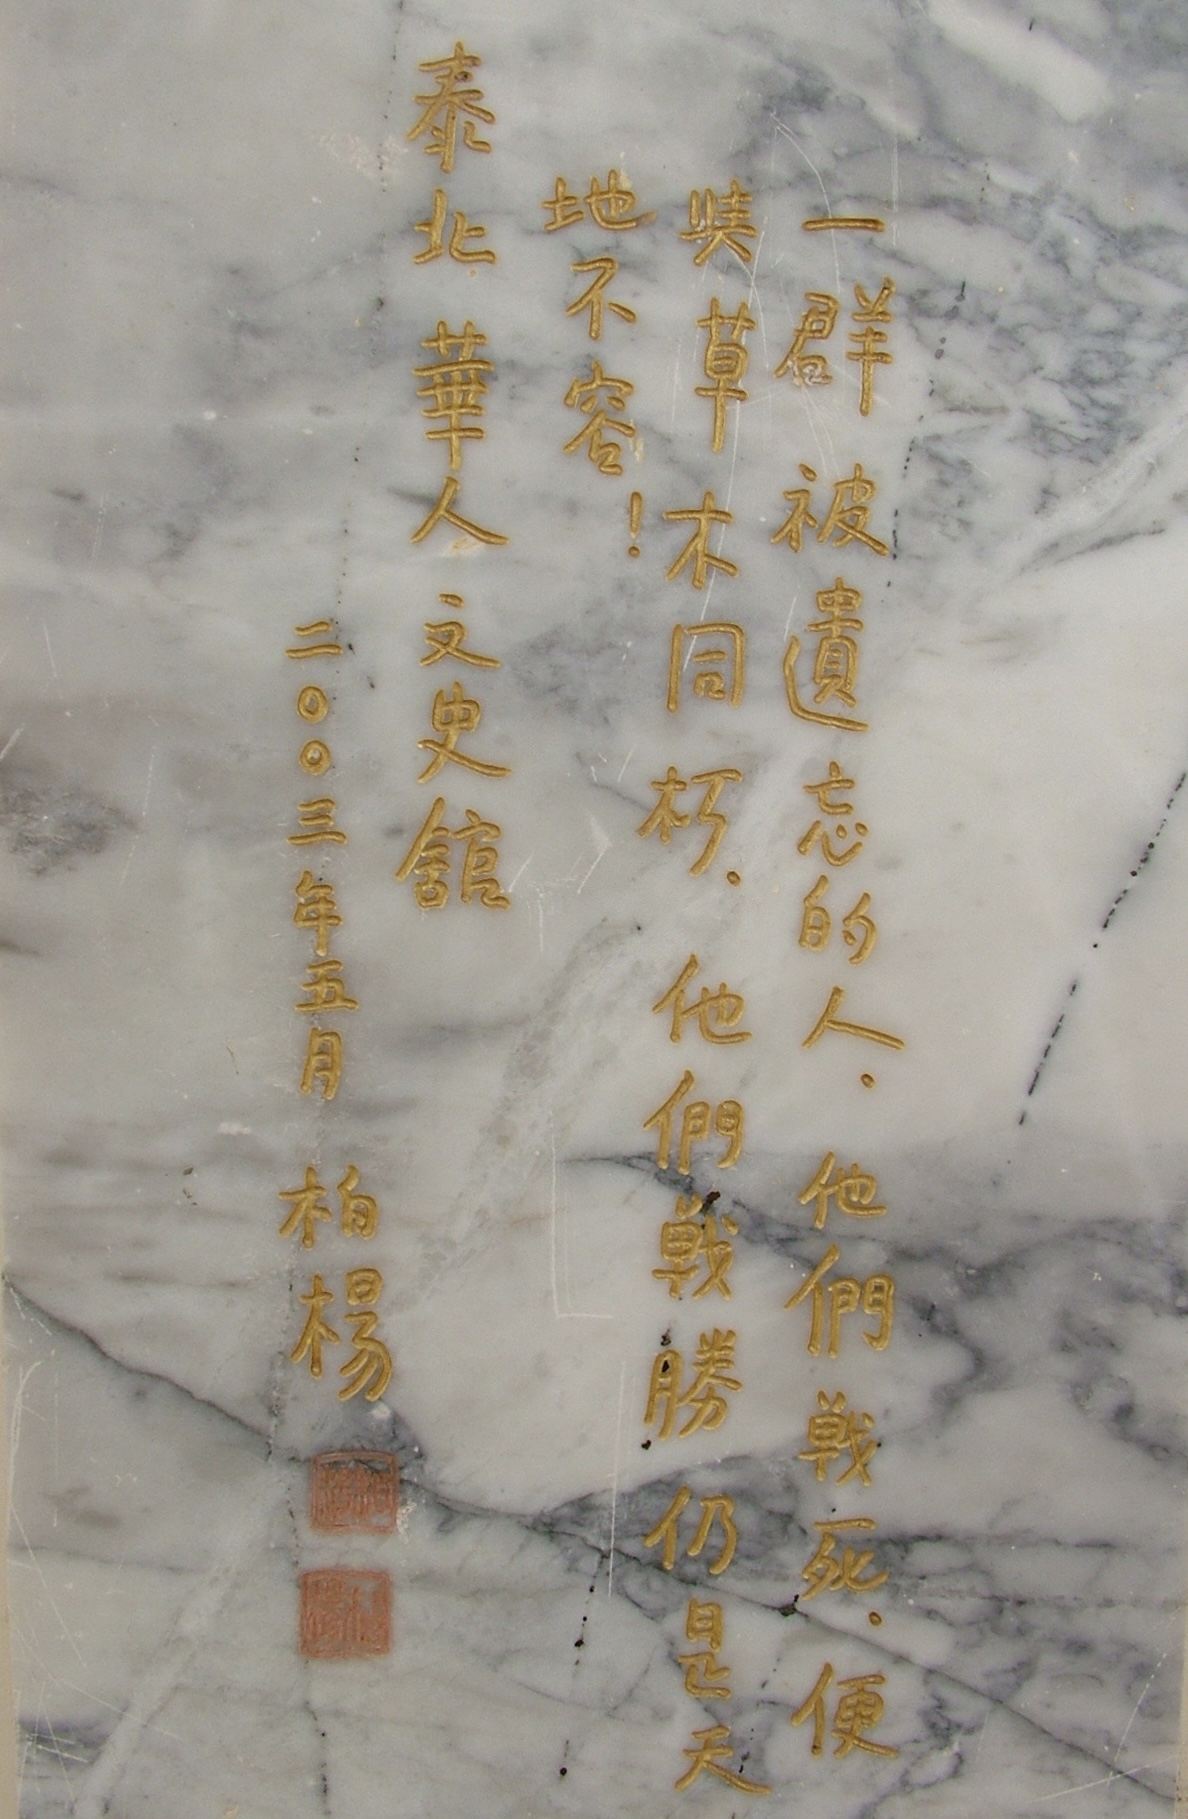 一群被遺忘的人．他們戰死．便
與草木同朽．他們戰勝仍是天
地不容！
泰北華人文史館
二〇〇三年五月 柏楊